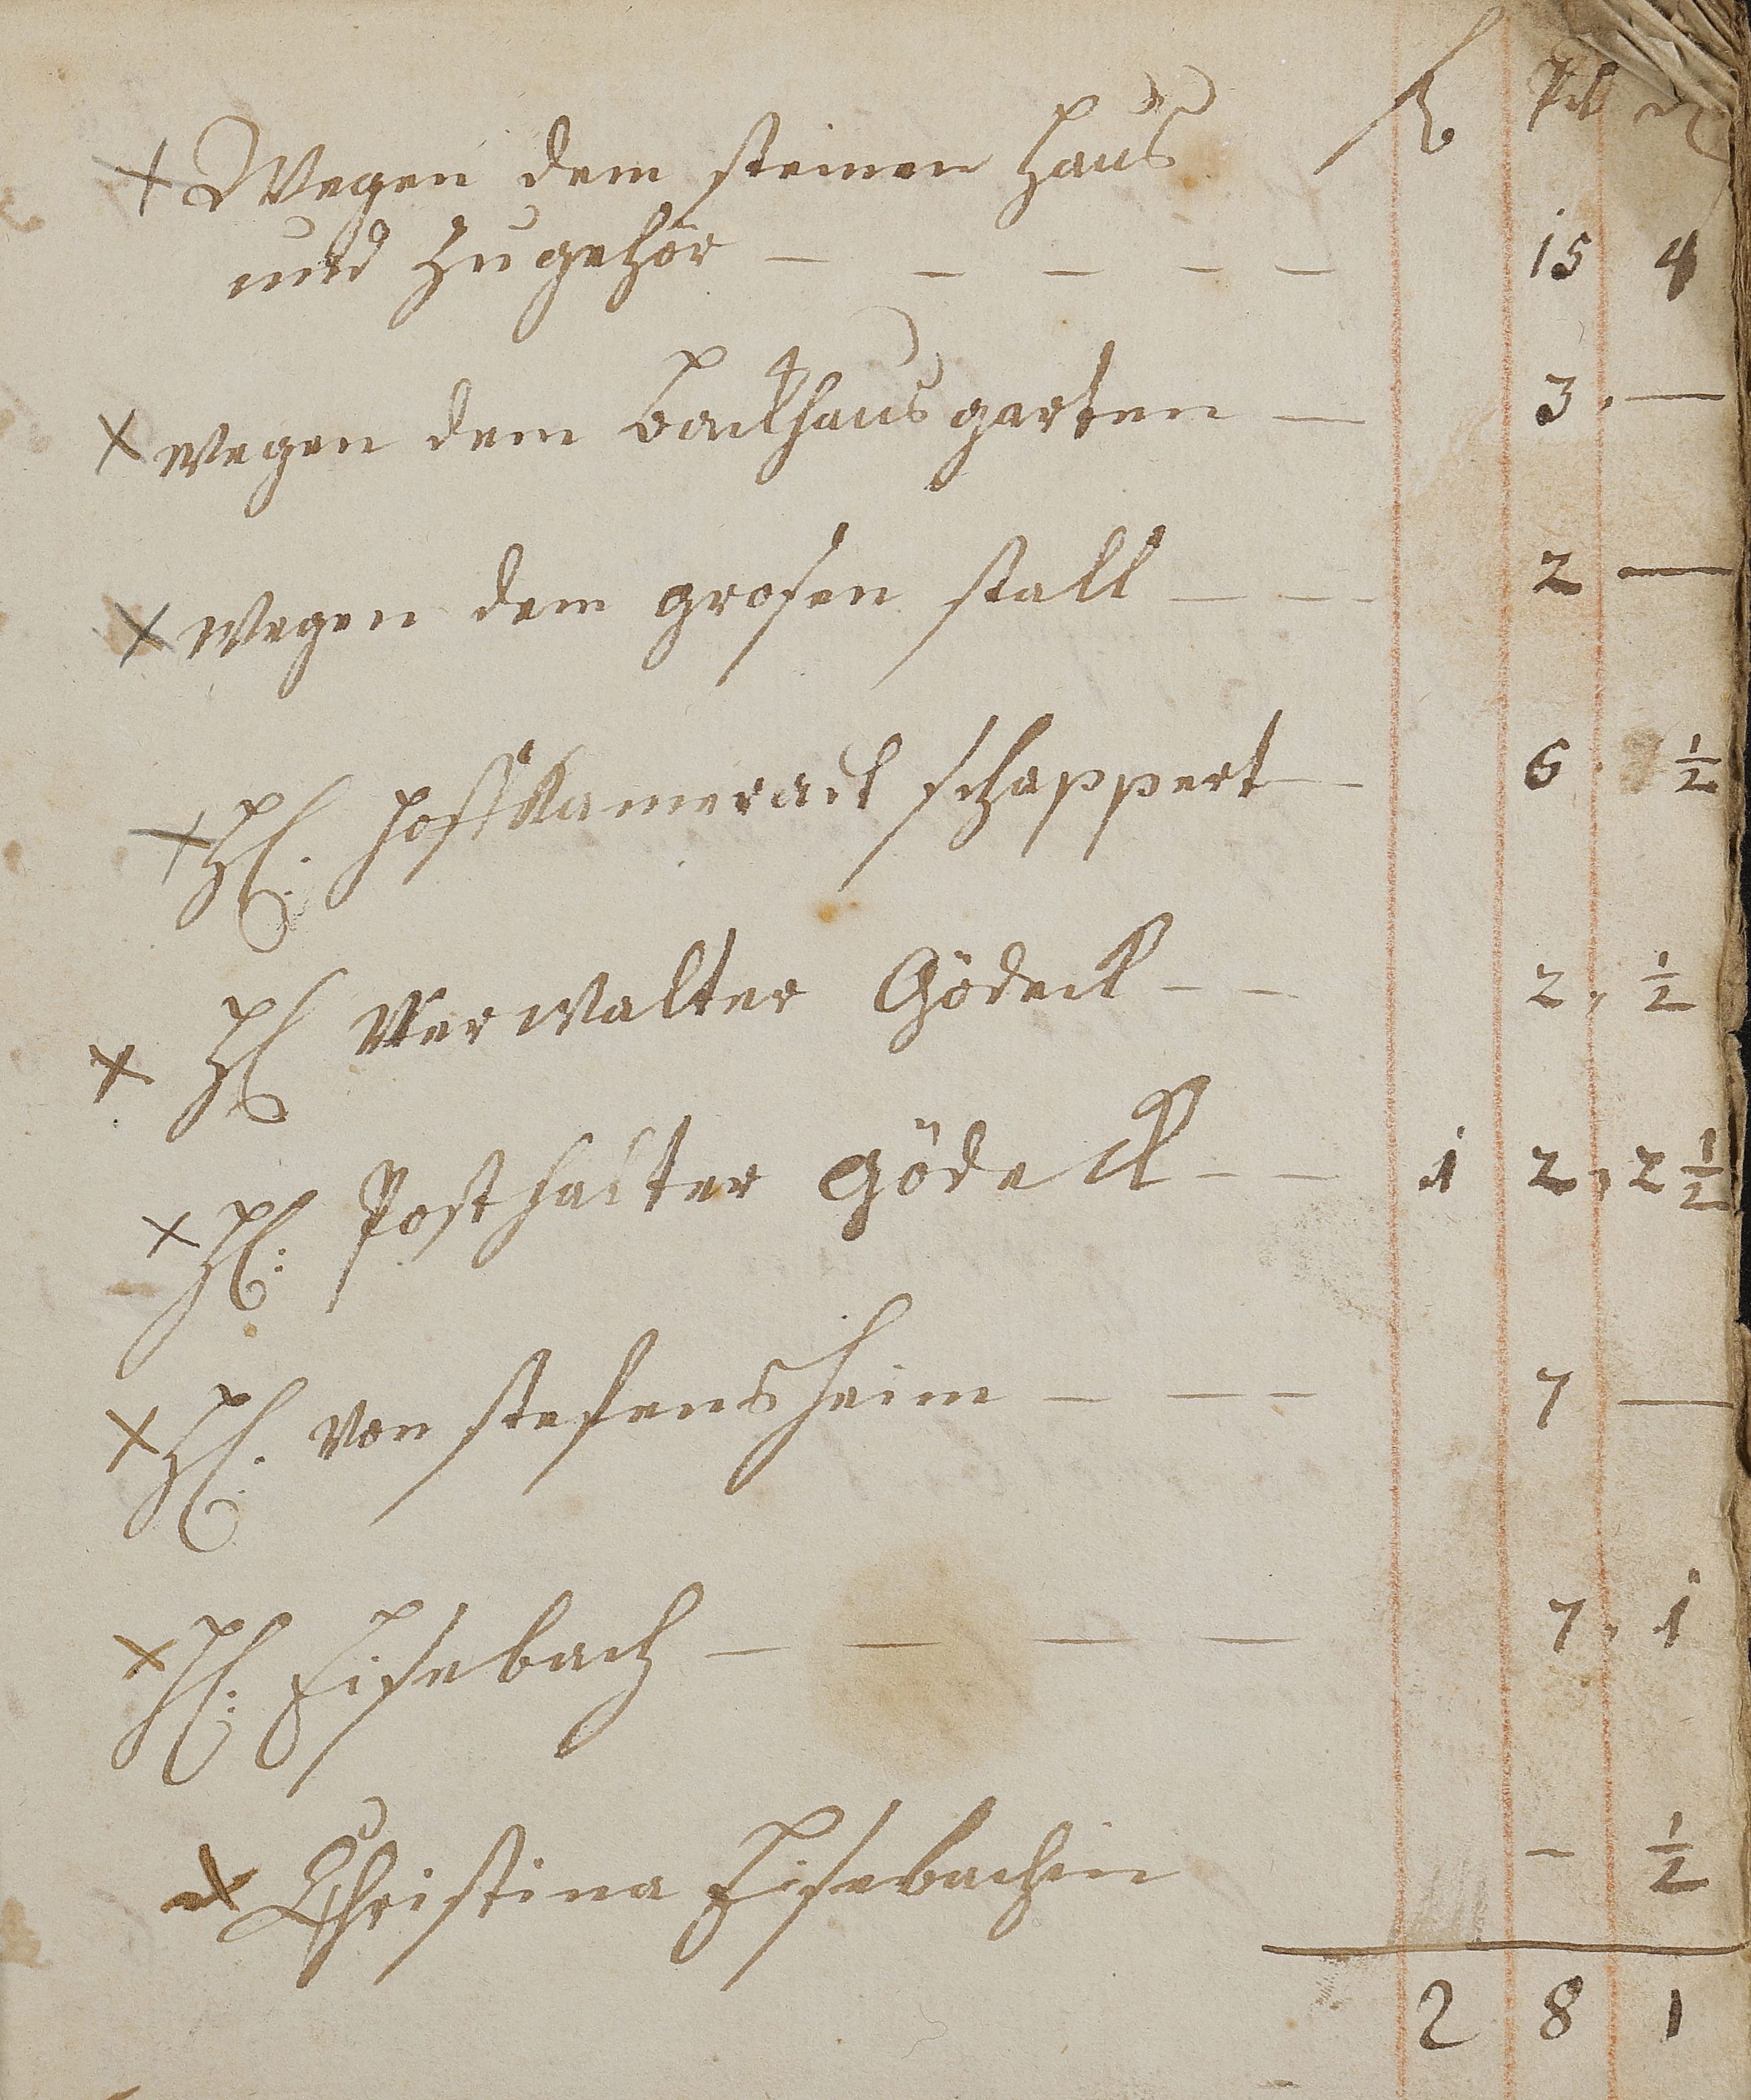 fl Alb d
+ Wegen dem steinen Haus
und Zugehör – – – – – 15 4
x wegen dem backhausgarten – 3. —
x wegen dem grosen stall – – 2 —
+ H. Hoffkamerack schappert – 6. ½
x H Verwalter Gödeck – – 2, ½
x H: Posthalter Gödeck – – 1 2, 2½
x H. von stefensheim – – – 7 —
x H: Eisebach – – – – 7, 1
x Christina Eisebachin – ½
2 8 1